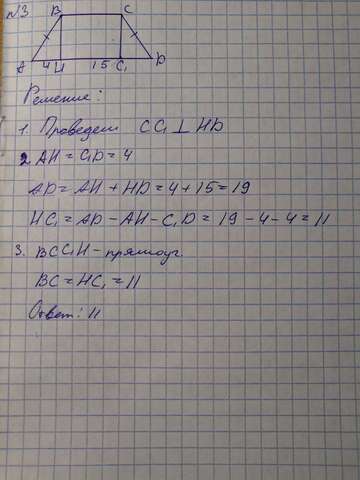 №3
B C
A 4 H 15 C₁ D
Решение:
1. Проведем CC₁ ⊥ HD
2 AH = C₁D = 4
AD = AH + HD = 4 + 15 = 19
HC₁ = AD - AH - C₁D = 19 - 4 - 4 = 11
3. BCC₁H - прямоуг.
BC = HC₁ = 11
Ответ: 11